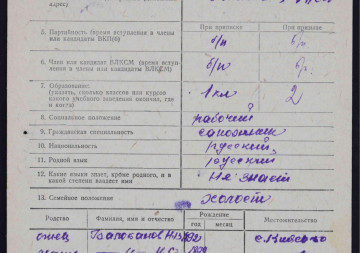 При приписке При призыве
5. Партийность (время вступления в члены или кандидаты ВКП(б) б/п б/п
6. Член или кандидат ВЛКСМ (время вступления в члены или кандидаты ВЛКСМ) б/п б/п
7. Образование:
(указать, сколько классов или курсов какого учебного заведения окончил, где и когда) 1 кл 2
8. Социальное положение рабочий
9. Гражданская специальность сапожник
10. Национальность русский
11. Родной язык русский
12. Какие языки знает, кроме родного, и в какой степени владеет ими не знает
13. Семейное положение холост
Родство Фамилия, имя и отчество Рождение Местожительство
год месяц
отец 1892